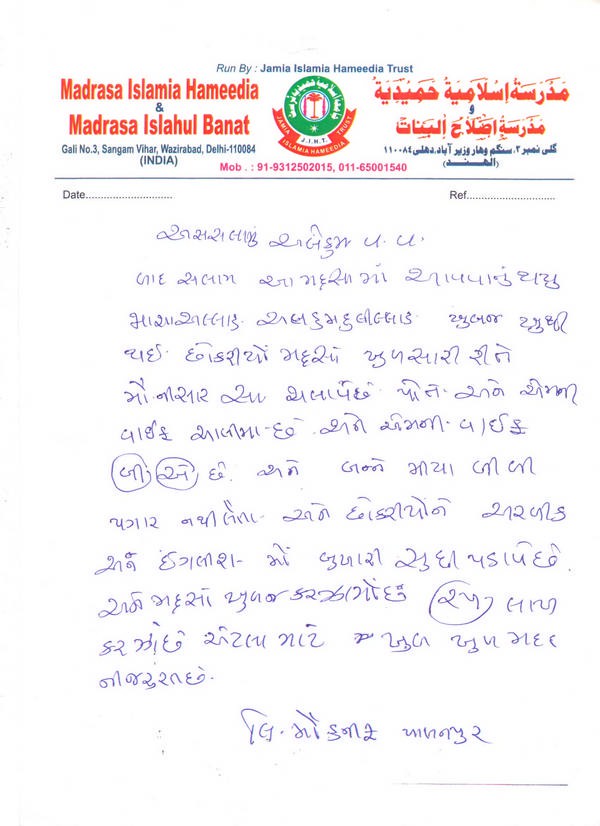 Run By : Jamia Islamia Hameedia Trust
Madrasa Islamia Hameedia
&
Madrasa Islahul Banat
Gali No.3, Sangam Vihar, Wazirabad, Delhi-110084
(INDIA)
JAMIA ISLAMIA HAMEEDIA TRUST
J.I.H.T.
مدرسة إسلامية حميدية
و
مدرسة إصلاح البنات
گلی نمبر ۳، سنگم وهار وزیر آباد، دهلی ۱۱۰۰۸٤
(الهند)
Mob. : 91-9312502015, 011-65001540
Date..............................
Ref..............................
અસસલામું અલેકુમ વ. વ.
બાદ સલામ આ મદ્રસામાં આવવાનું થયું
માશાઅલ્લાહ અલહમદુલીલ્લાહ ખુબજ ખુશી
થઈ છોકરીયો મદ્રસો ખુબ સારી રીતે
મૌ નીસાર સા ચલાવેછે પોતે અને એમની
વાઈફ આલીમા છે અને એમની વાઈફ
બી એ છે. અને બન્ને મીયા બીબી
પગાર નથી લેતા અને છોકરીયોને અરબીક
અને ઈંગલીશ માં બુખારી સુધી પડાવેછે
અને મદ્રસો ખુબજ કરજામાંછે લાખ
કરજોછે એટલા માટે ખુબ ખુબ મદદ
ની જરૂરતછે.
લિ. મૌ હનીફ પાલનપુર